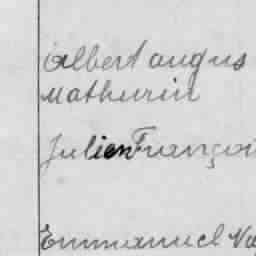 Albert augus
Mathurin
Julien Françoi
Emmanuel Na